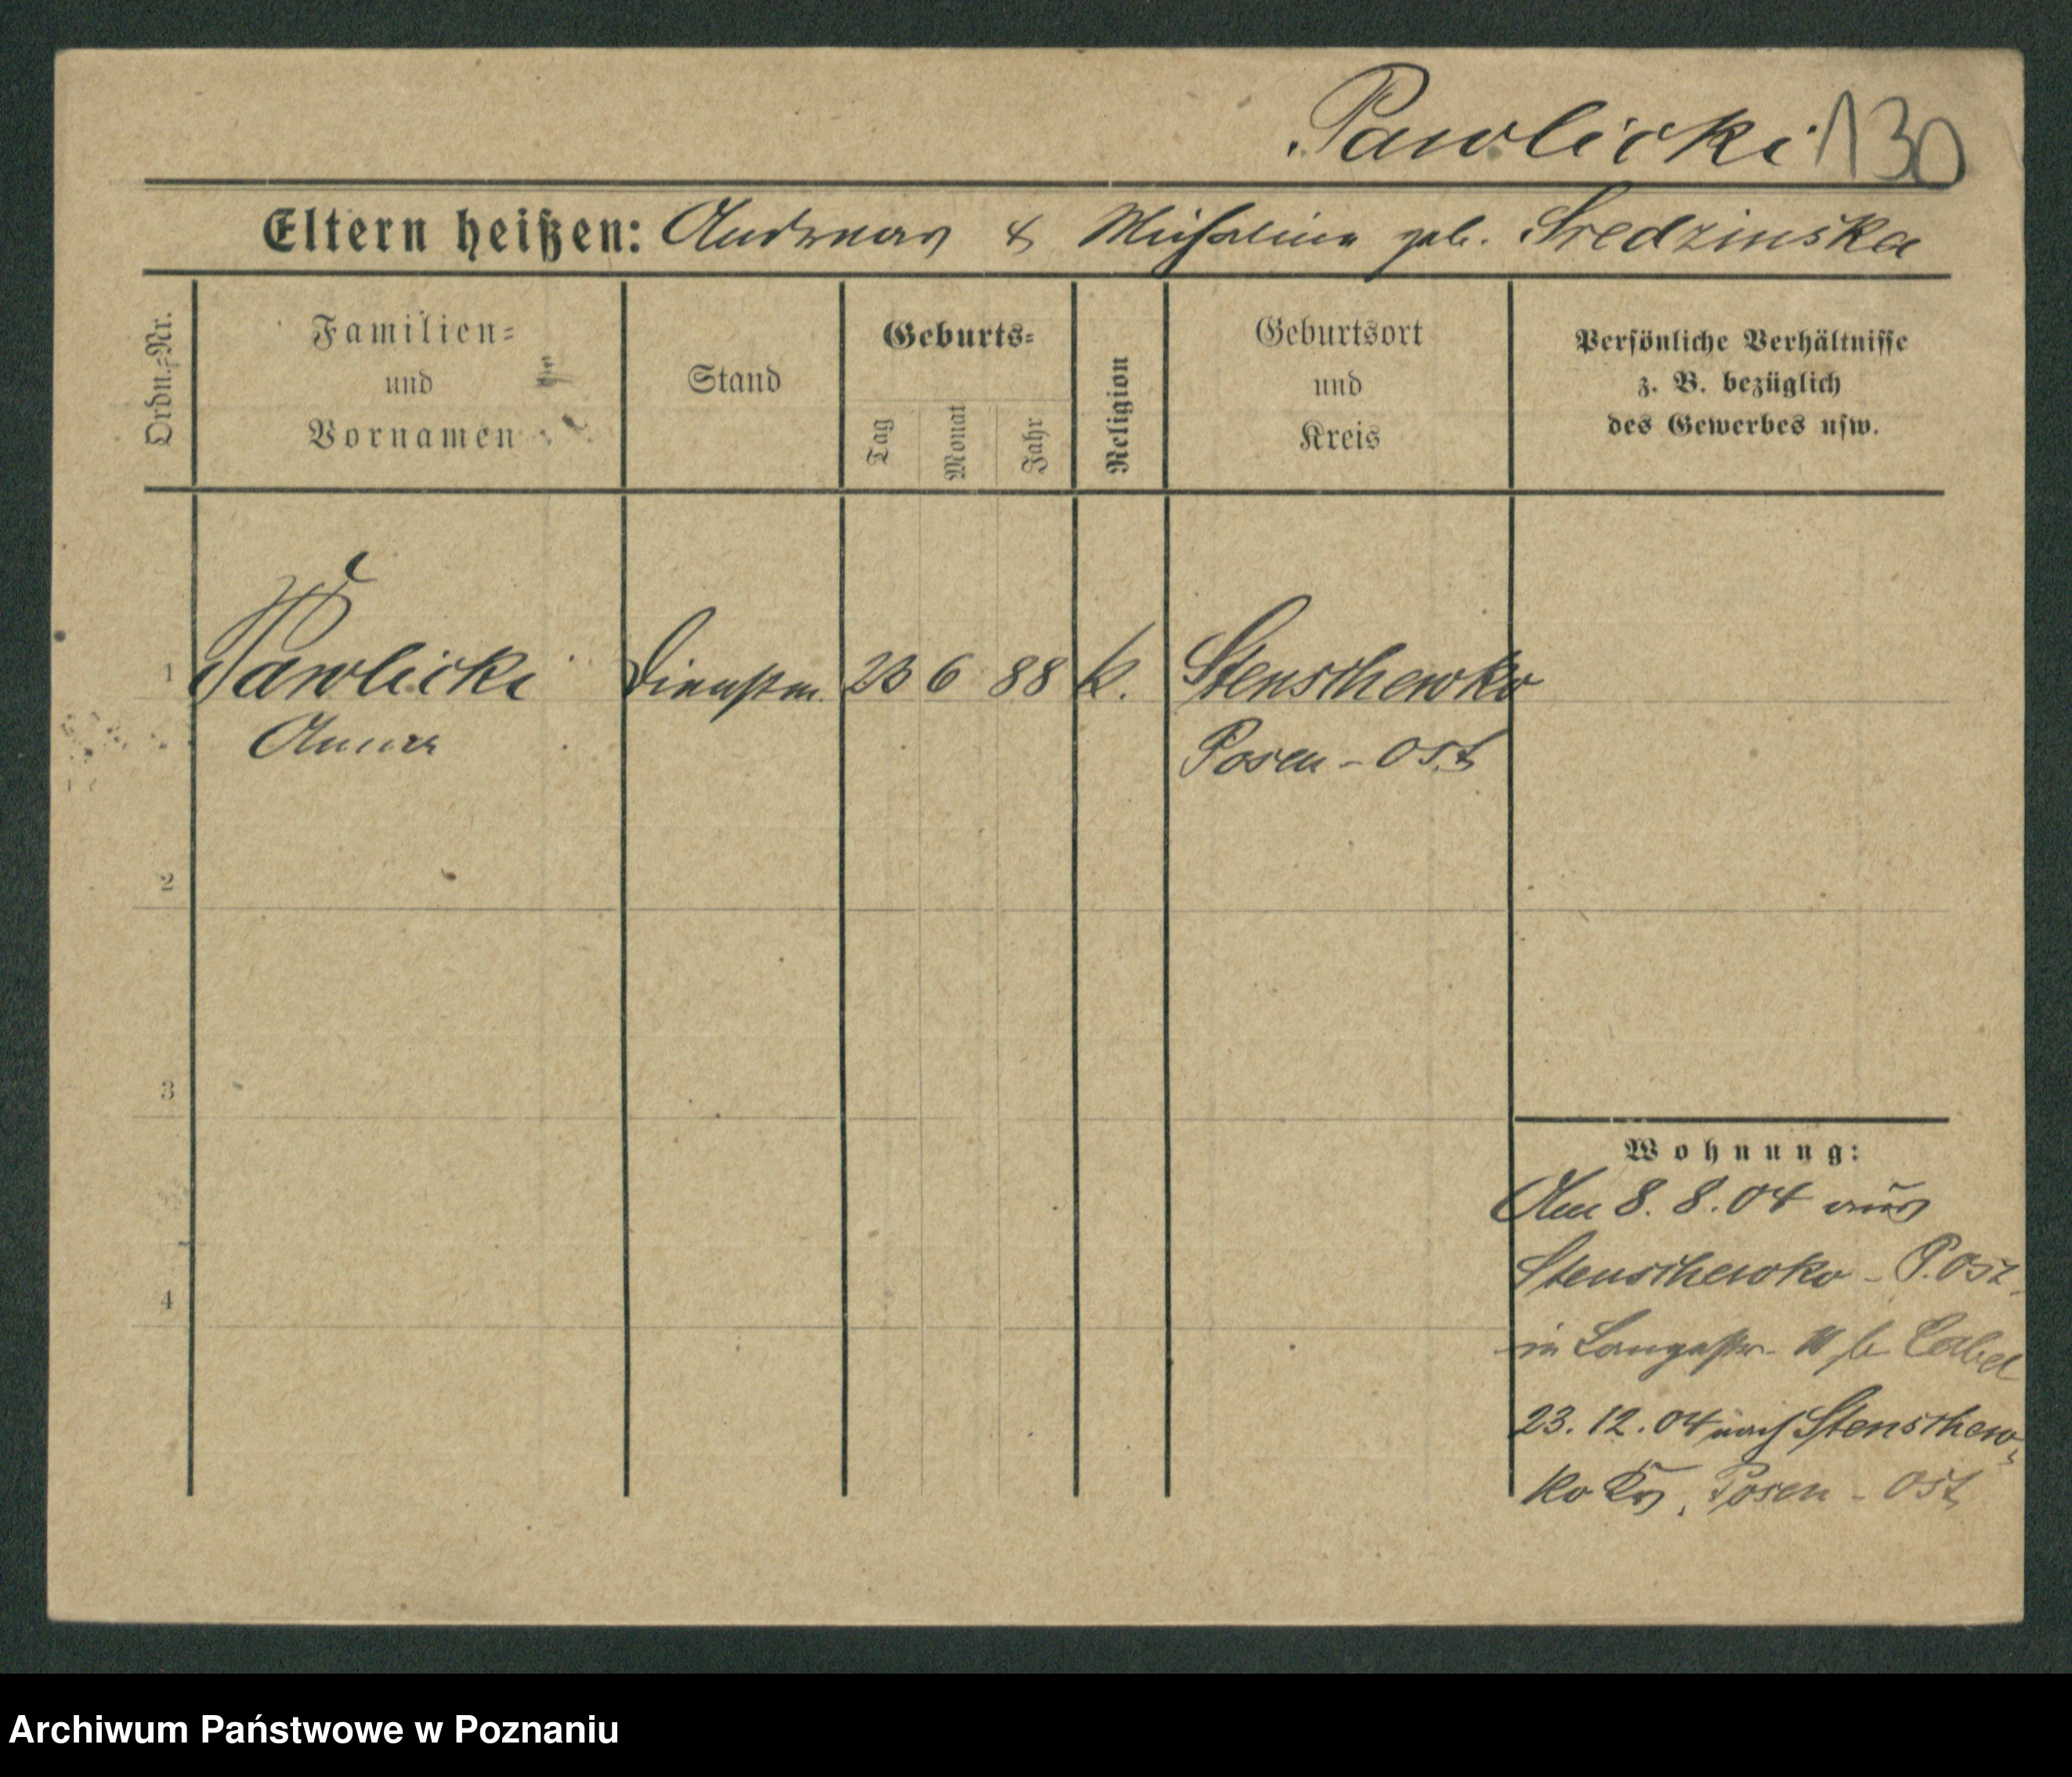 Pawlicki 130
Eltern heißen: Andreas & Michalina geb. Sredzinska
Ordn.=Nr.
Familien=
und
Vornamen
Stand
Geburts=
Tag
Monat
Jahr
Religion
Geburtsort
und
Kreis
Persönliche Verhältnisse
z. B. bezüglich
des Gewerbes usw.
1 Pawlicki Dienstm. 23 6 88 k. Stenschewko
Anna Posen - Ost
2
3
4
Wohnung:
Am 8. 8. 04 aus
Stenschewko - P. Ost
in Langestr. 11 b
23. 12. 04 nach Stenschew-
ko Krs. Posen - Ost
Archiwum Państwowe w Poznaniu